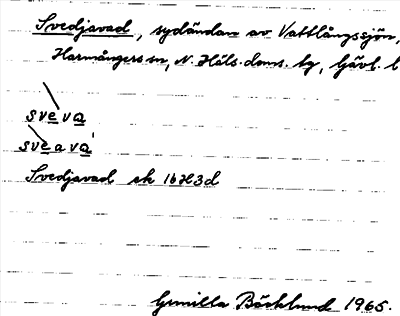 Svedjavad, sydändan av Vattlångssjön,
Harmångers sn, N. Häls. doms. tg, Gävl. l
sveva
sveava
Svedjavad ek 16H3d
Gunilla Bäcklund 1965.